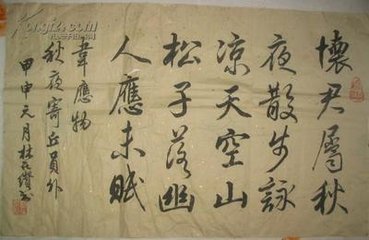 懷君屬秋
夜散步詠
凉天空山
松子落幽
人應未眠
韋應物
秋夜寄丘員外
甲申元月